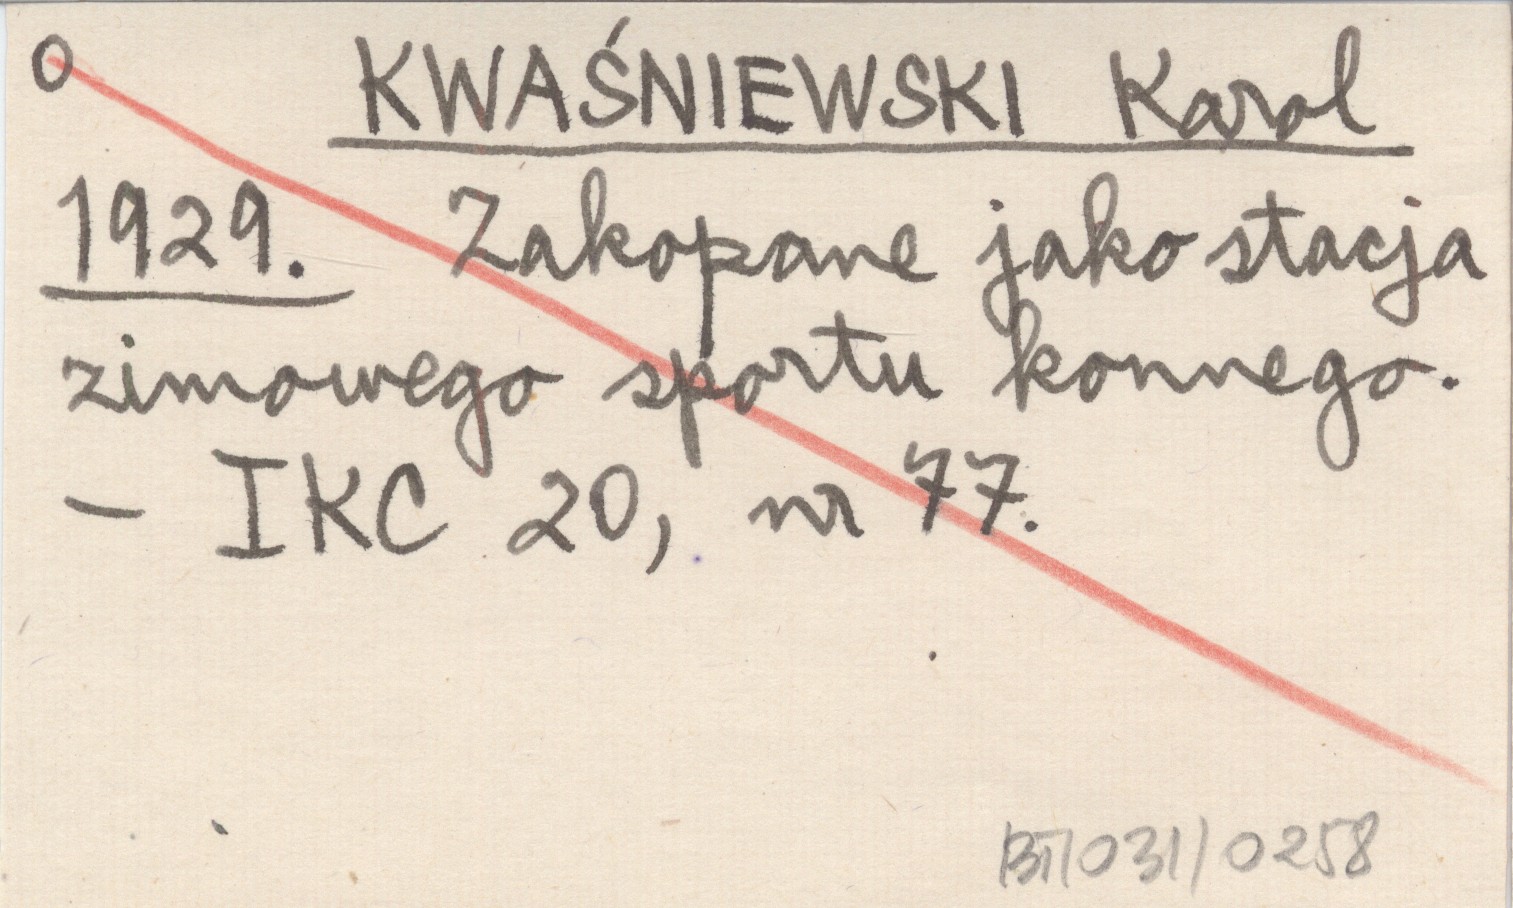 O KWAŚNIEWSKI Karol
1929. Zakopane jako stacja
zimowego sportu konnego.
– IKC 20, nr 77.
BT/031/0258